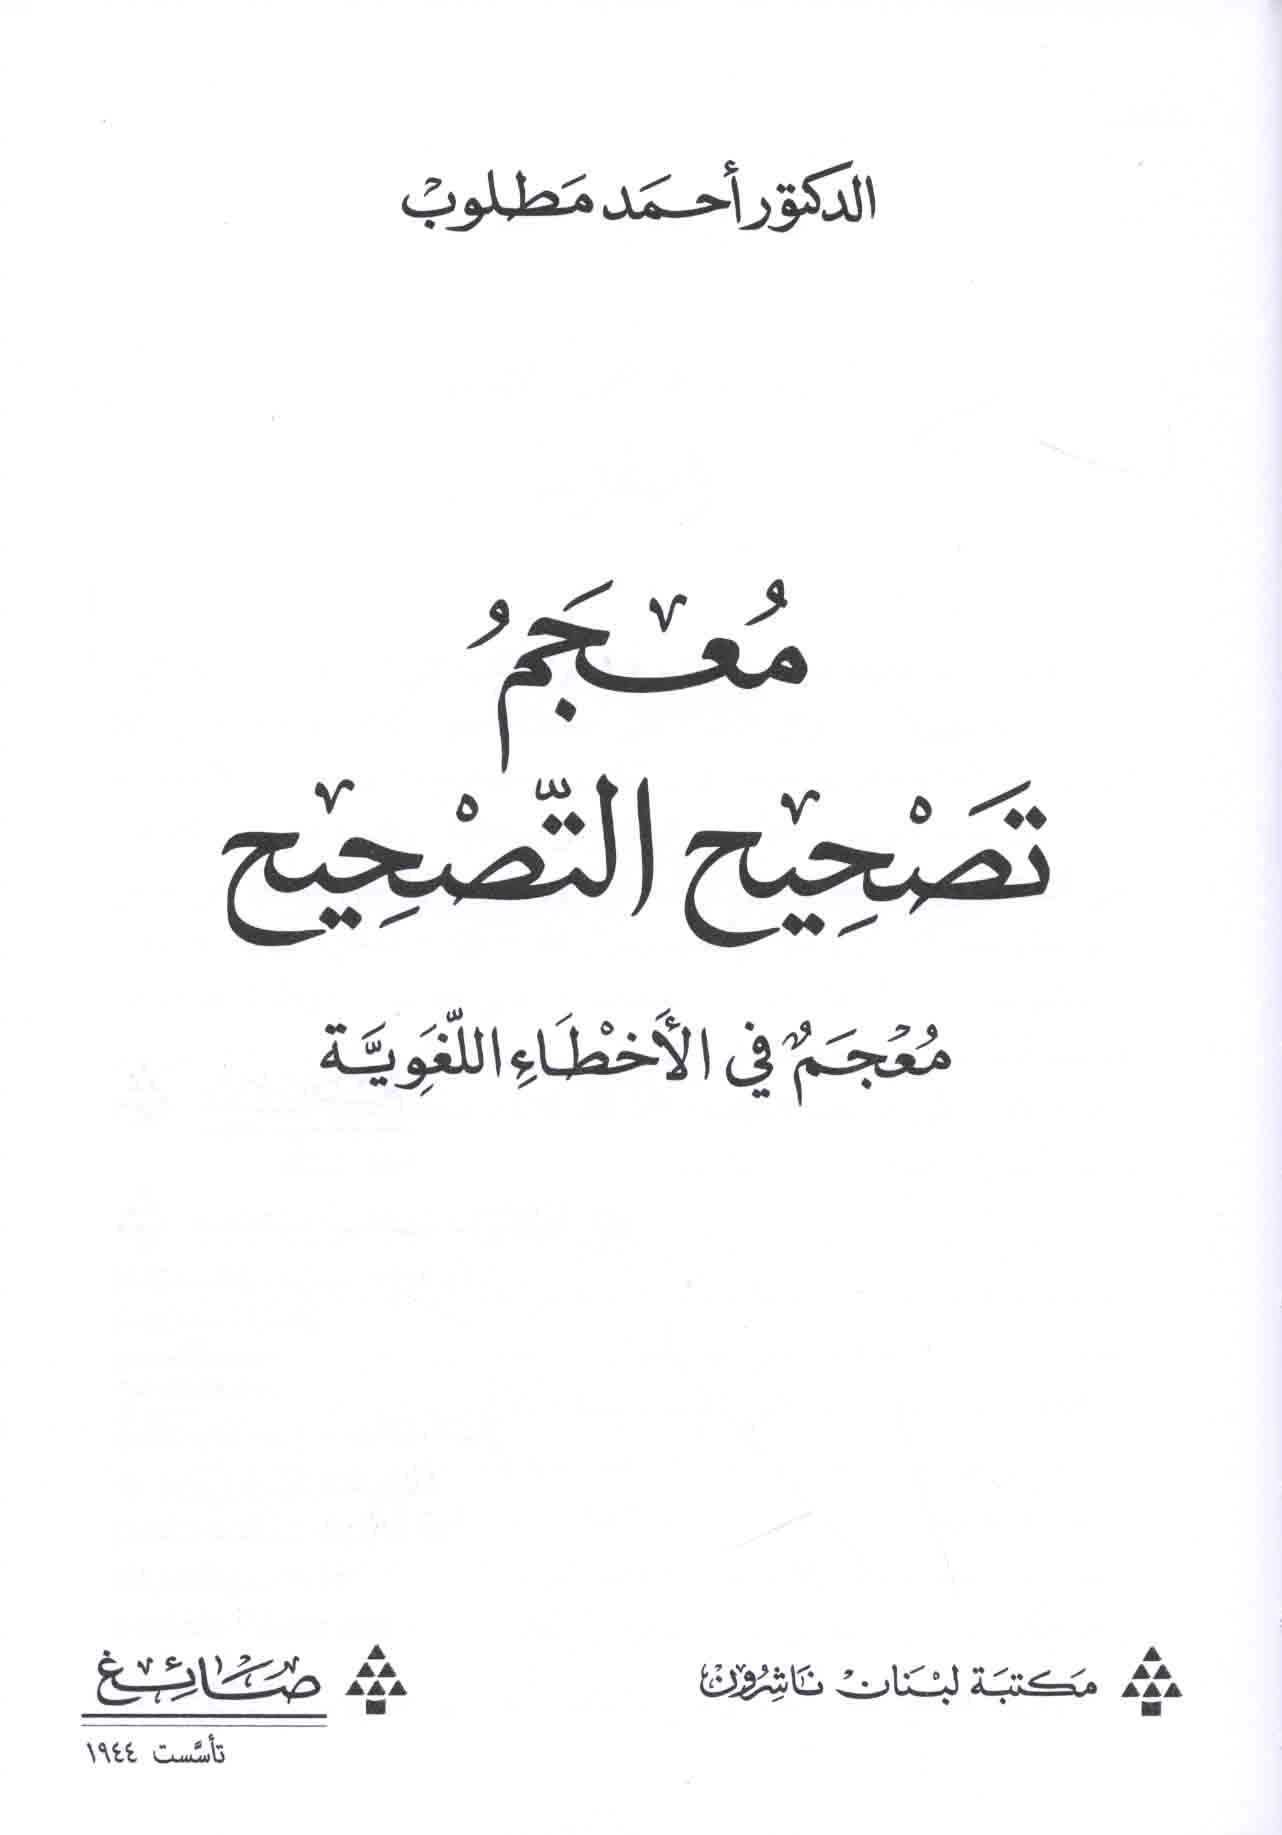 الدكتور أحمد مطلوب
مُعجَمُ
تَصْحِيح التَّصْحِيح
مُعْجَمٌ في الأَخْطَاءِ اللّغَوِيَّة
مَكتبَة لبْنَان نَاشِرُون
صَائِغ
تأسَّست ١٩٤٤